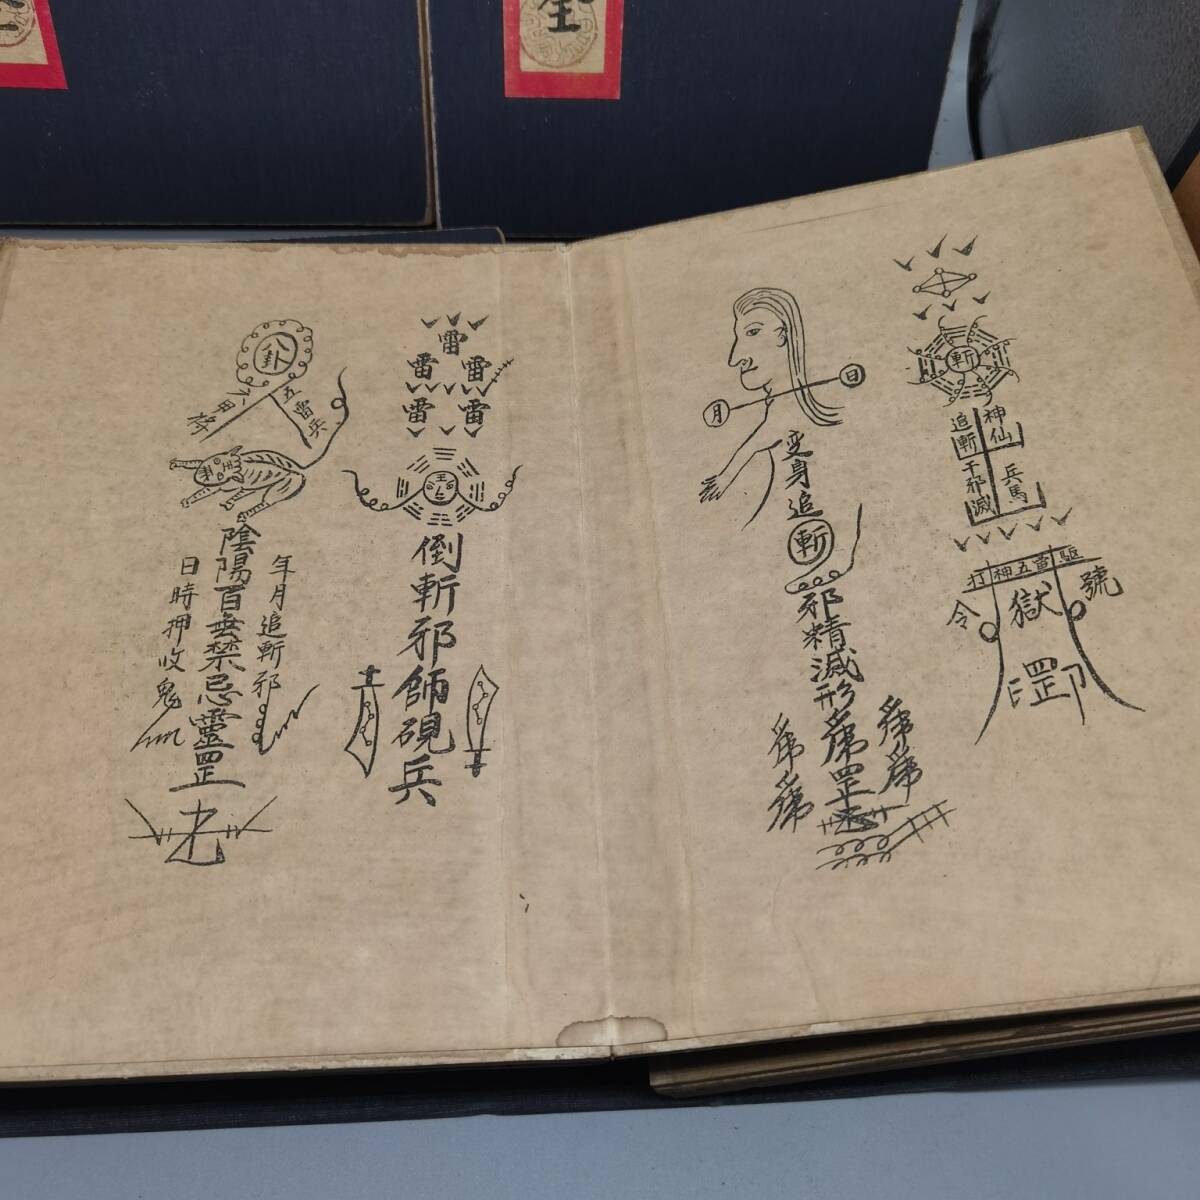 斬
神仙
追斬
兵馬
千邪滅
打神五雷駆
令
號
獄
罡
日
月
变身追
斬
邪精滅形
罡
雷
雷
雷
雷
雷
王
倒斬邪師硯兵
八卦
六甲
五雷兵
年月追斬邪
陰陽百無禁忌靈罡
日時押收鬼